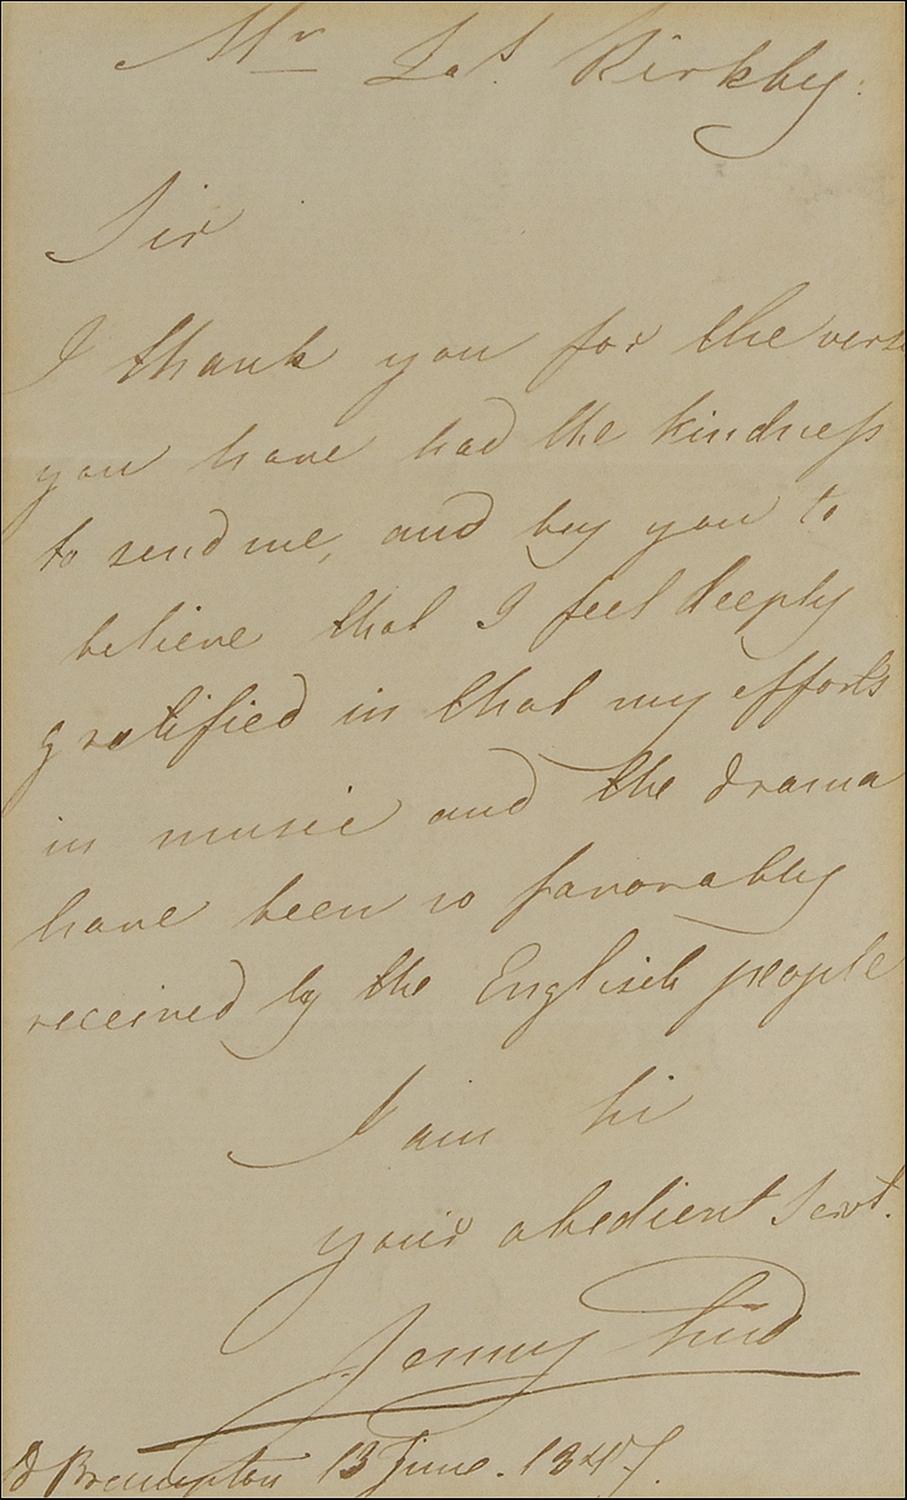 Mr Jas. Kirkby.
Sir
I thank you for the verse
you have had the kindness
to send me, and beg you to
believe that I feel deeply
gratified in that my efforts
in music and the drama
have been so favorably
received by the English people
I am Sir
your obedient Servt.
Jenny Lind
Brompton 13 June. 1847.